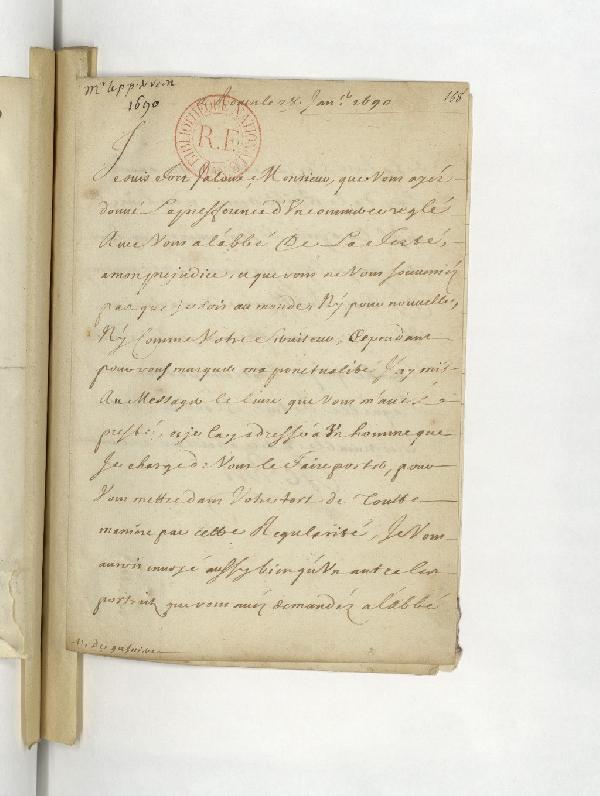 1690
Rouen le 28. Janv. 1690
168
BIBLIOTHEQUE NATIONALE
R.F.
Je suis fort jaloux, Monsieur, que vous ayez
donné la presference d'Un commerce reglé
Avec Vous a l'abbé De La
a mon prejudice, et que vous ne Vous souveniez
pas que je sois au monde, Ny pour nouvelles,
Ny Comme Votre Serviteur, Cependant
pour vous marquer ma ponctualité J'ay mis
Au Messager le livre que Vous m'avez
presté, et je l'ay adressé a Vn homme que
Je charge de Vous le Faire porter, pour
Vous mettre dans Votre tort de Toutte
maniere par cette Regularité, Je Vous
aurois envoyé aussy bien qu'Un autre les
portraits que vous avez demandez a l'abbé